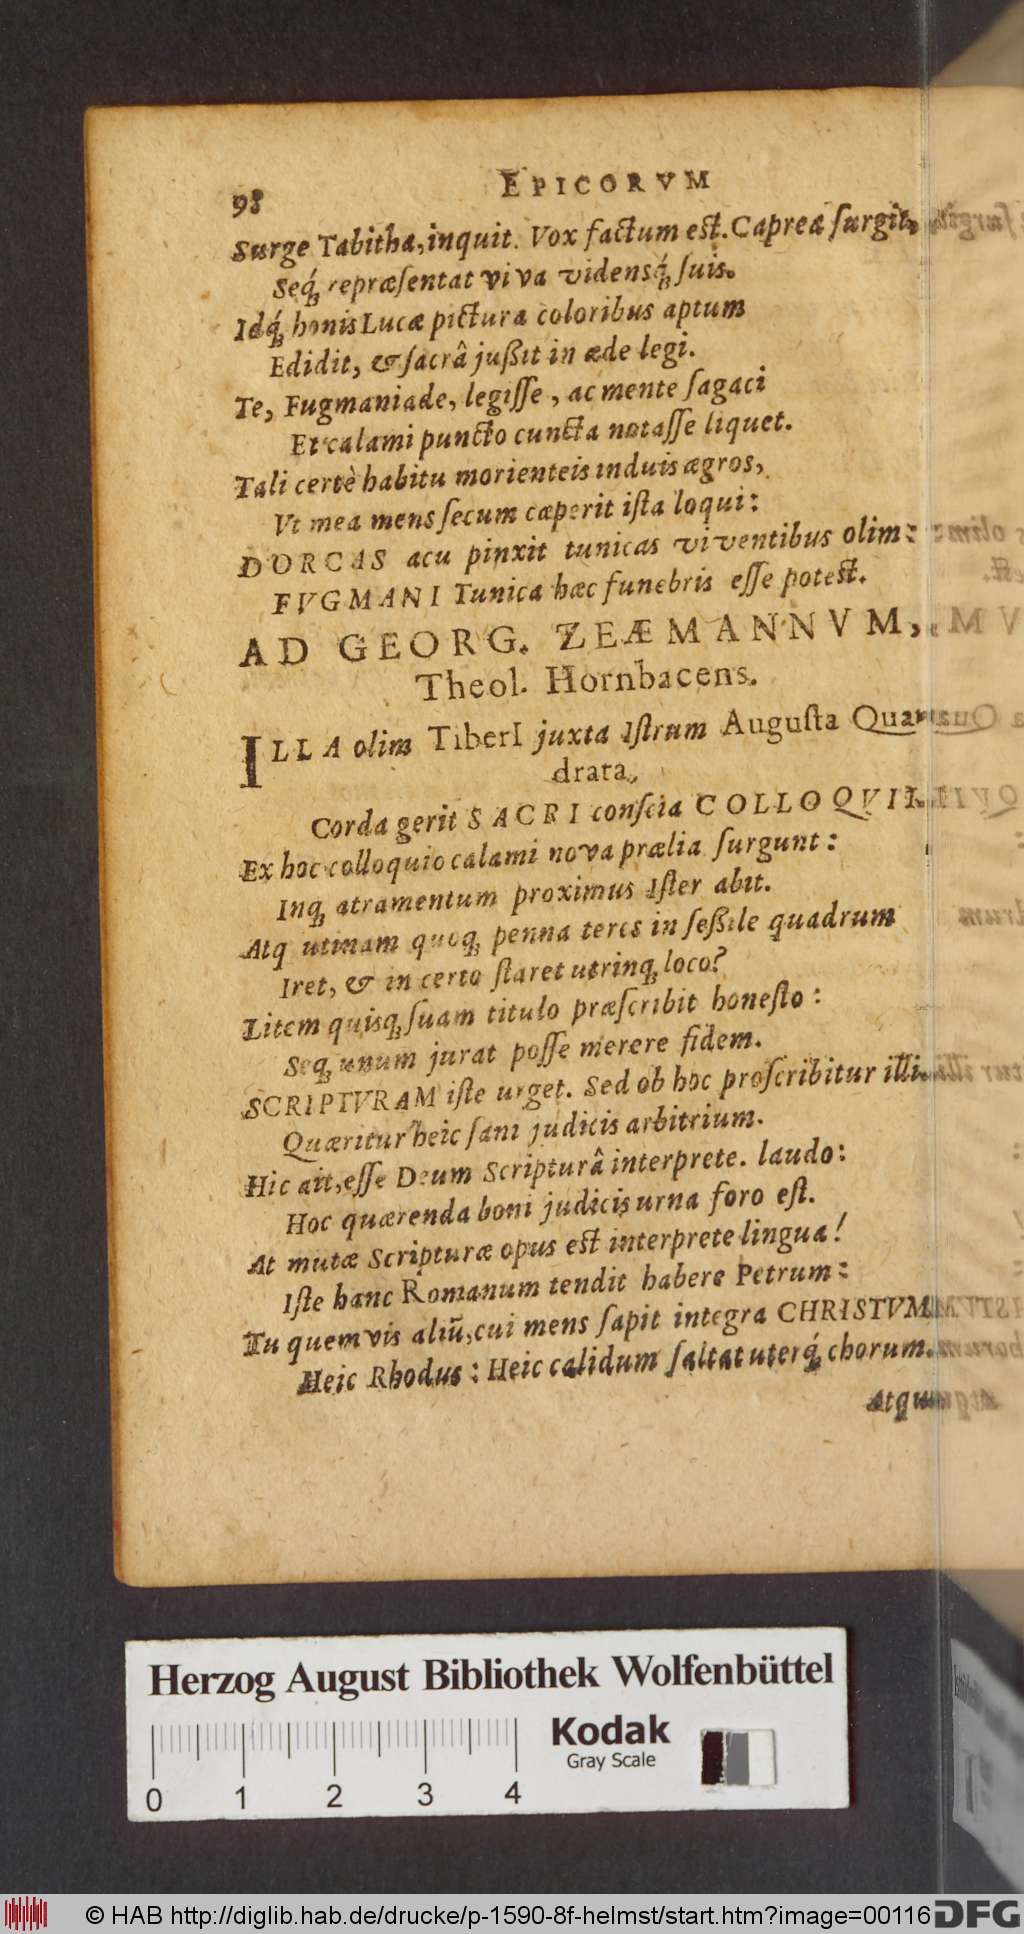 98 EPICORVM
Surge Tabitha, inquit. Vox factum est. Capreá ſurgit,
Seq́ꝫ repræſentat viva vidensq́ꝫ ſuis.
Idq́ꝫ bonis Lucæ pictura coloribus aptum
Edidit, & ſacrâ juſsit in æde legi.
Te, Fugmaniade, legiſſe, ac mente ſagaci
Et calami puncto cuncta notaſſe liquet.
Tali certè habitu morienteis induis ægros,
Vt mea mens ſecum cæperit iſta loqui:
DORCAS acu pinxit tunicas viventibus olim:
FVGMANI Tunica hæc funebris eſſe poteſt.
AD GEORG. ZEÆMANNVM,
Theol. Hornbacens.
ILLA olim TiberI juxta Iſtrum Auguſta Qua-
drata,
Corda gerit SACRI conſcia COLLOQVII.
Ex hoc colloquio calami nova prælia ſurgunt:
Inqꝫ atramentum proximus Iſter abit.
Atq utinam quoqꝫ penna teres in ſeſsile quadrum
Iret, & in certo ſtaret utrinqꝫ loco?
Litem quisqꝫ ſuam titulo præſcribit honeſto:
Seqꝫ unum jurat poſſe merere fidem.
SCRIPTVRAM iſte urget. Sed ob hoc proſcribitur illi.
Quæritur heic ſani judicis arbitrium.
Hic ait, eſſe Deum Scripturâ interprete. laudo:
Hoc quærenda boni judicis urna foro eſt.
At mutæ Scripturæ opus eſt interprete lingua!
Iſte hanc Romanum tendit habere Petrum:
Tu quemvis aliũ, cui mens ſapit integra CHRISTVM.
Heic Rhodus: Heic calidum ſaltat uterq́ꝫ chorum.
Atqui
Herzog August Bibliothek Wolfenbüttel
Kodak
Gray Scale
0 1 2 3 4
© HAB http://diglib.hab.de/drucke/p-1590-8f-helmst/start.htm?image=00116 DFG